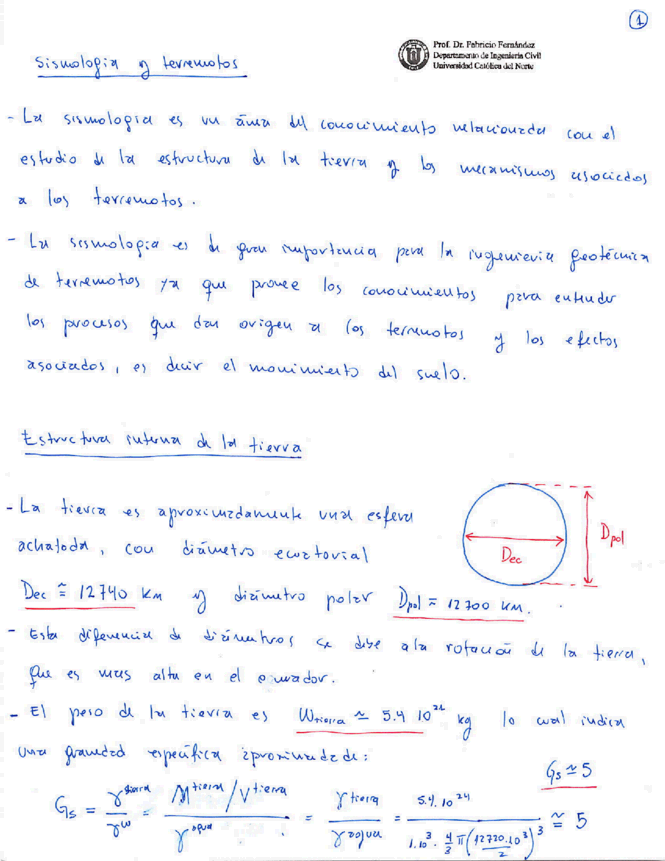 1
Prof. Dr. Fabricio Fernández
Departamento de Ingeniería Civil
Universidad Católica del Norte
Sismología y terremotos
- La sismología es un área del conocimiento relacionada con el
estudio de la estructura de la tierra y los mecanismos asociados
a los terremotos.
- La sismología es de gran importancia para la ingeniería geotécnica
de terremotos ya que provee los conocimientos para entender
los procesos que dan origen a los terremotos y los efectos
asociados, es decir el movimiento del suelo.
Estructura interna de la tierra
- La tierra es aproximadamente una esfera
achatada, con diámetro ecuatorial
Dec ≅ 12740 km y diámetro polar Dpol ≈ 12700 km.
Dec
Dpol
- Esta diferencia de diámetros se debe a la rotación de la tierra,
que es mas alta en el ecuador.
- El peso de la tierra es Wtierra ≃ 5.4 10²⁴ kg lo cual indica
una gravedad específica aproximada de:
Gs ≃ 5
Gs = γ^tierra / γ^w = M^tierra / V^tierra / γ^agua = γ tierra / γ agua = 5.4 . 10²⁴ / 1.10³ . 4/3 π (12720.10³ / 2)³ ≅ 5